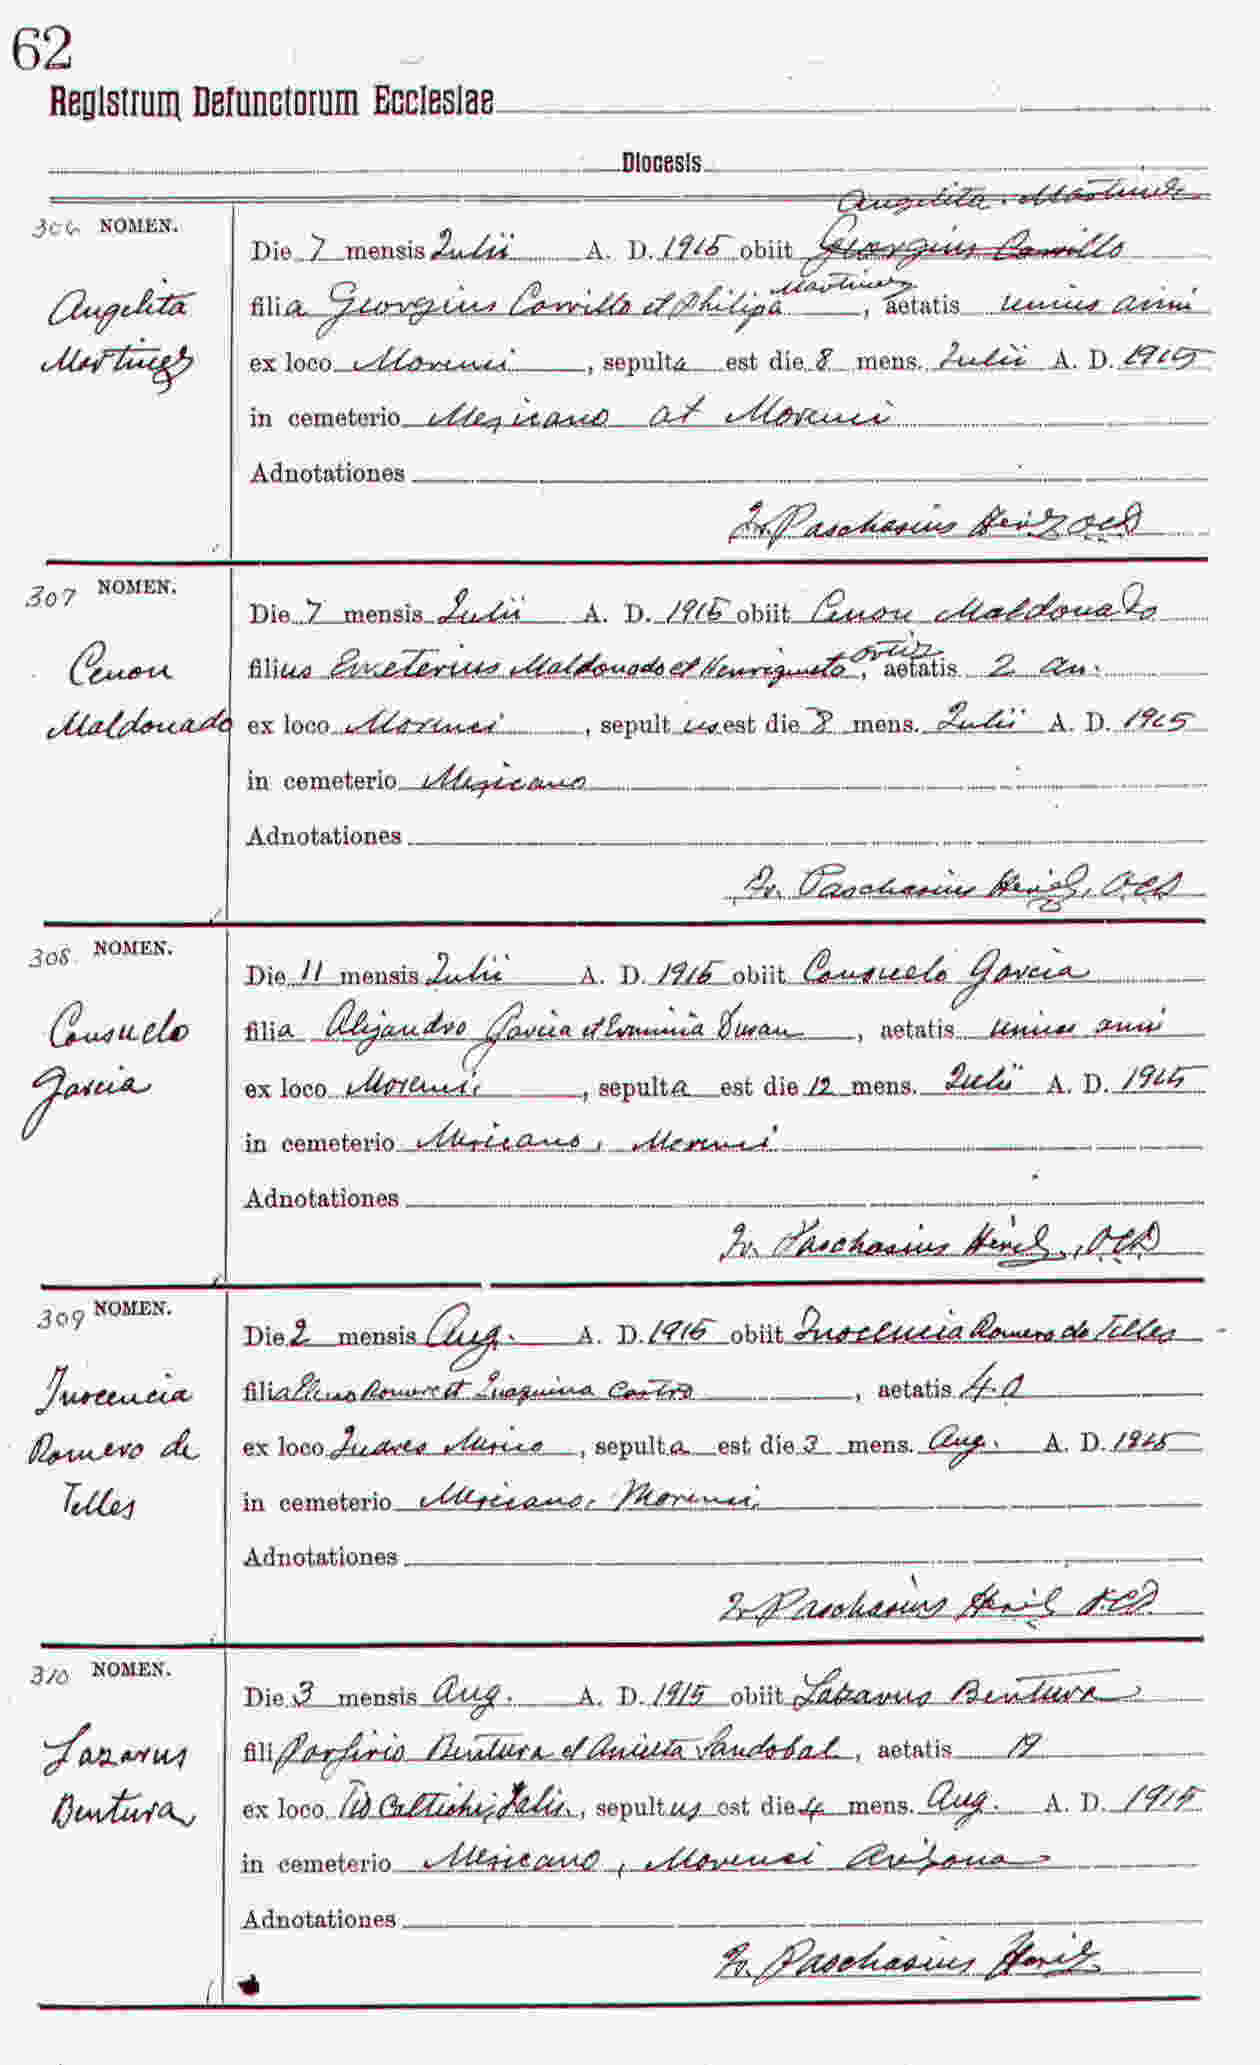 62
Registrum Defunctorum Ecclesiae
Diocesis
Angelita Martinez
306 NOMEN.
Die 7 mensis Julii A. D. 1915 obiit Georgius Carrillo
Angelita
Martinez
Martinez
filia Georgius Carrillo et Philipa , aetatis unius anni
ex loco Morenci , sepulta est die 8 mens. Julii A. D. 1915
in cemeterio Mexicano at Morenci
Adnotationes
Fr. Paschasius Heriz OCD
307 NOMEN.
Die 7 mensis Julii A. D. 1915 obiit Cenon Maldonado
Cenon
Maldonado
Ortiz
filius Emeterius Maldonado et Henriqueta , aetatis 2 an.
ex loco Morenci , sepultus est die 8 mens. Julii A. D. 1915
in cemeterio Mexicano
Adnotationes
Fr. Paschasius Heriz, OCD
308. NOMEN.
Die 11 mensis Julii A. D. 1915 obiit Consuelo Garcia
Consuelo
Garcia
filia Alijandro Garcia et Erminia Duran , aetatis unius anni
ex loco Morenci , sepulta est die 12 mens. Julii A. D. 1915
in cemeterio Mexicano, Morenci
Adnotationes
Fr. Paschasius Heriz, OCD
309 NOMEN.
Die 2 mensis Aug. A. D. 1915 obiit Inocencia Romero de Telles
Inocencia
Romero de
Telles
filia Romero et Juaquina Castro , aetatis 40
ex loco Juares Mexico , sepulta est die 3 mens. Aug. A. D. 1915
in cemeterio Mexicano, Morenci
Adnotationes
Fr. Paschasius Heriz OCD
310 NOMEN.
Die 3 mensis Aug. A. D. 1915 obiit Lazarus Bentura
Lazarus
Bentura
fili Porfirio Bentura et Aniceta Sandobal , aetatis 19
ex loco Jalis. , sepultus est die 4 mens. Aug. A. D. 1915
in cemeterio Mexicano, Morenci Arizona
Adnotationes
Fr. Paschasius Heriz